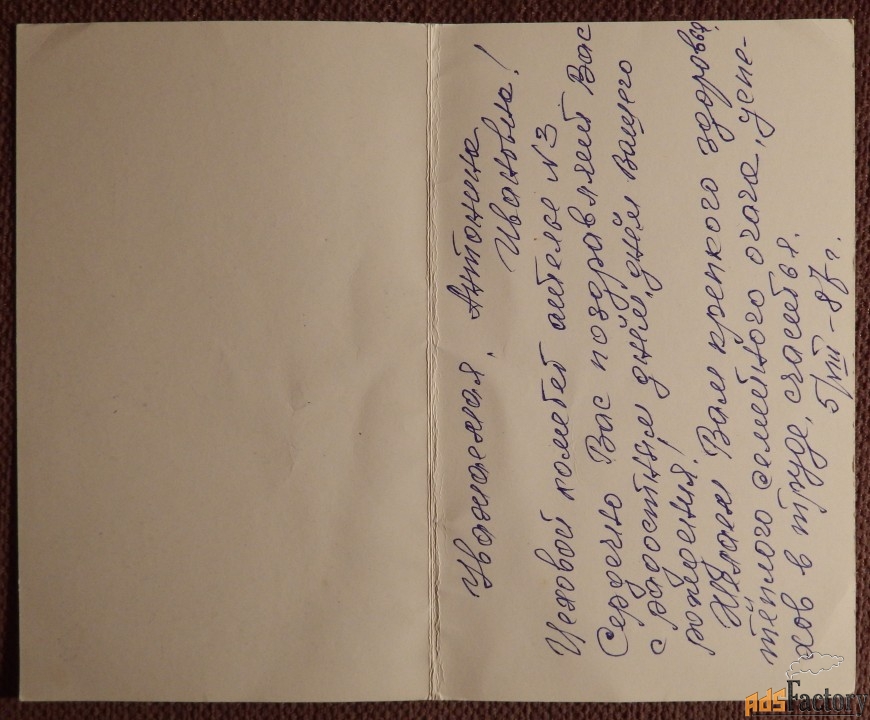 Уважаемая, Антонина
Ивановна!
Цеховой кометет ателье N3
Сердечно Вас поздравляет Вас
с радостным днём, днём вашего
рождения,
Желаем Вам крепкого здоровья,
тёплого семейного очага, успе-
хов в труде, счастья.
5/VIII-87г.
AdsFactory